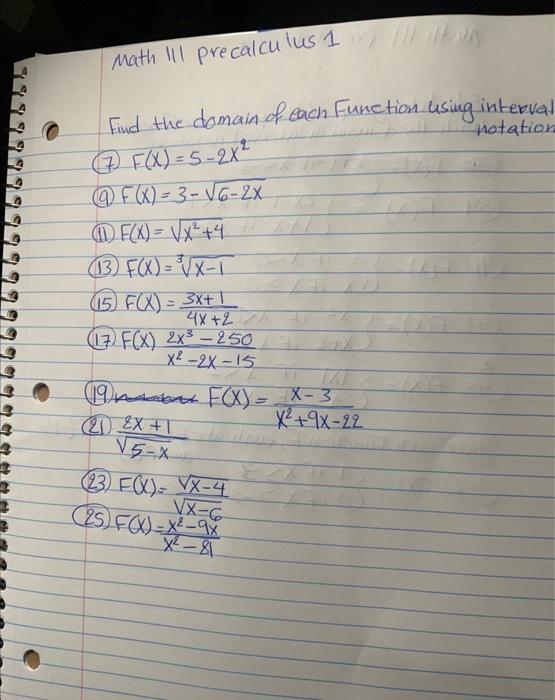 Math 111 precalculus 1
Find the domain of each Function using interval
notation
(7) F(X) = 5 - 2X²
(9) F(X) = 3 - √6-2x
(11) F(X) = √x²+4
(13) F(X) = ³√x-1
(15) F(X) = 3x+1
4x+2
(17) F(X) 2x³ - 250
x² - 2x - 15
(19) F(X) = x - 3
x² + 9x - 22
(21) 2x + 1
√5-x
(23) F(X) = √x-4
√x-6
(25) F(X) = x² - 9x
x² - 81